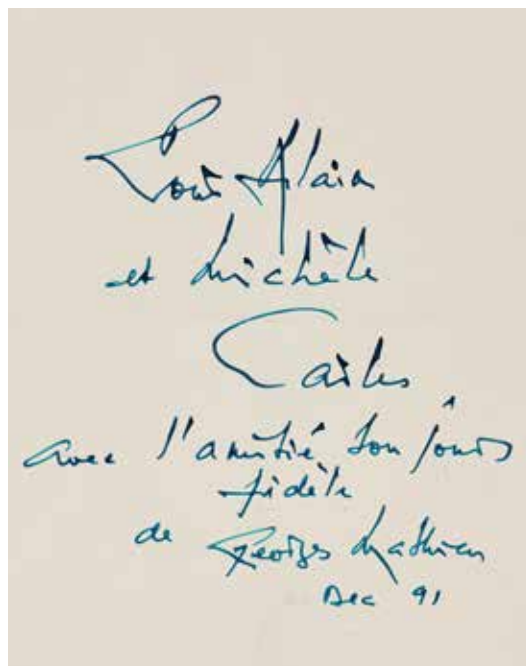 Pour Alain
et Michèle
Carles
avec l'amitié toujours
fidèle
de Georges Mathieu
Dec 91